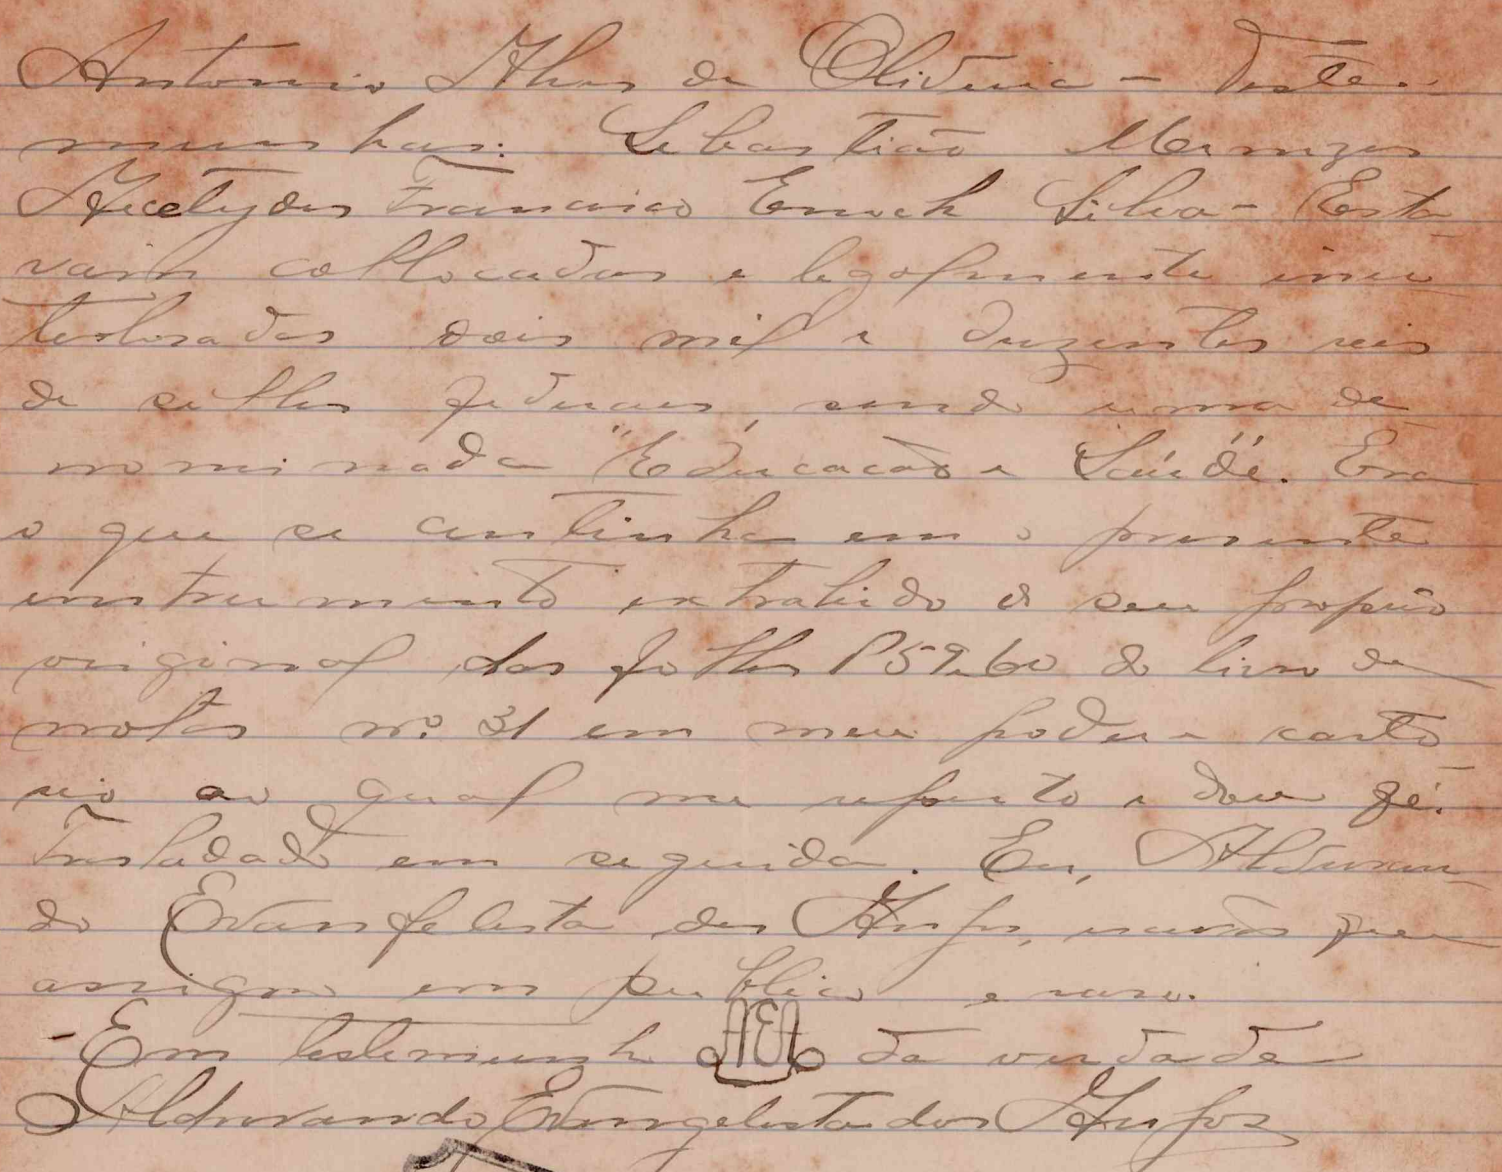 Antonio Alves de Oliveira - Teste-
munhas: Sebastião Menezes
Francisco Enock Silva - Esta-
vam collocadas e legalmente inu
telosadas dois mil e duzentos reis
de sellos federaes, sendo uma de
nominada "Educacão e Saúde". Era
o que se continha em o presente
instrumento extrahido do seu proprio
original das folhas 59 e 60 do livro de
notas nº 31 em meu poder e carto
rio ao qual me reporto e dou fé.
Trasladado em seguida. Eu, Aldrovan-
do Evangelista dos Anjos, escrivão que
assigno em publico e raso.
- Em testemunho AEA da verdade
Aldrovando Evangelista dos Anjos